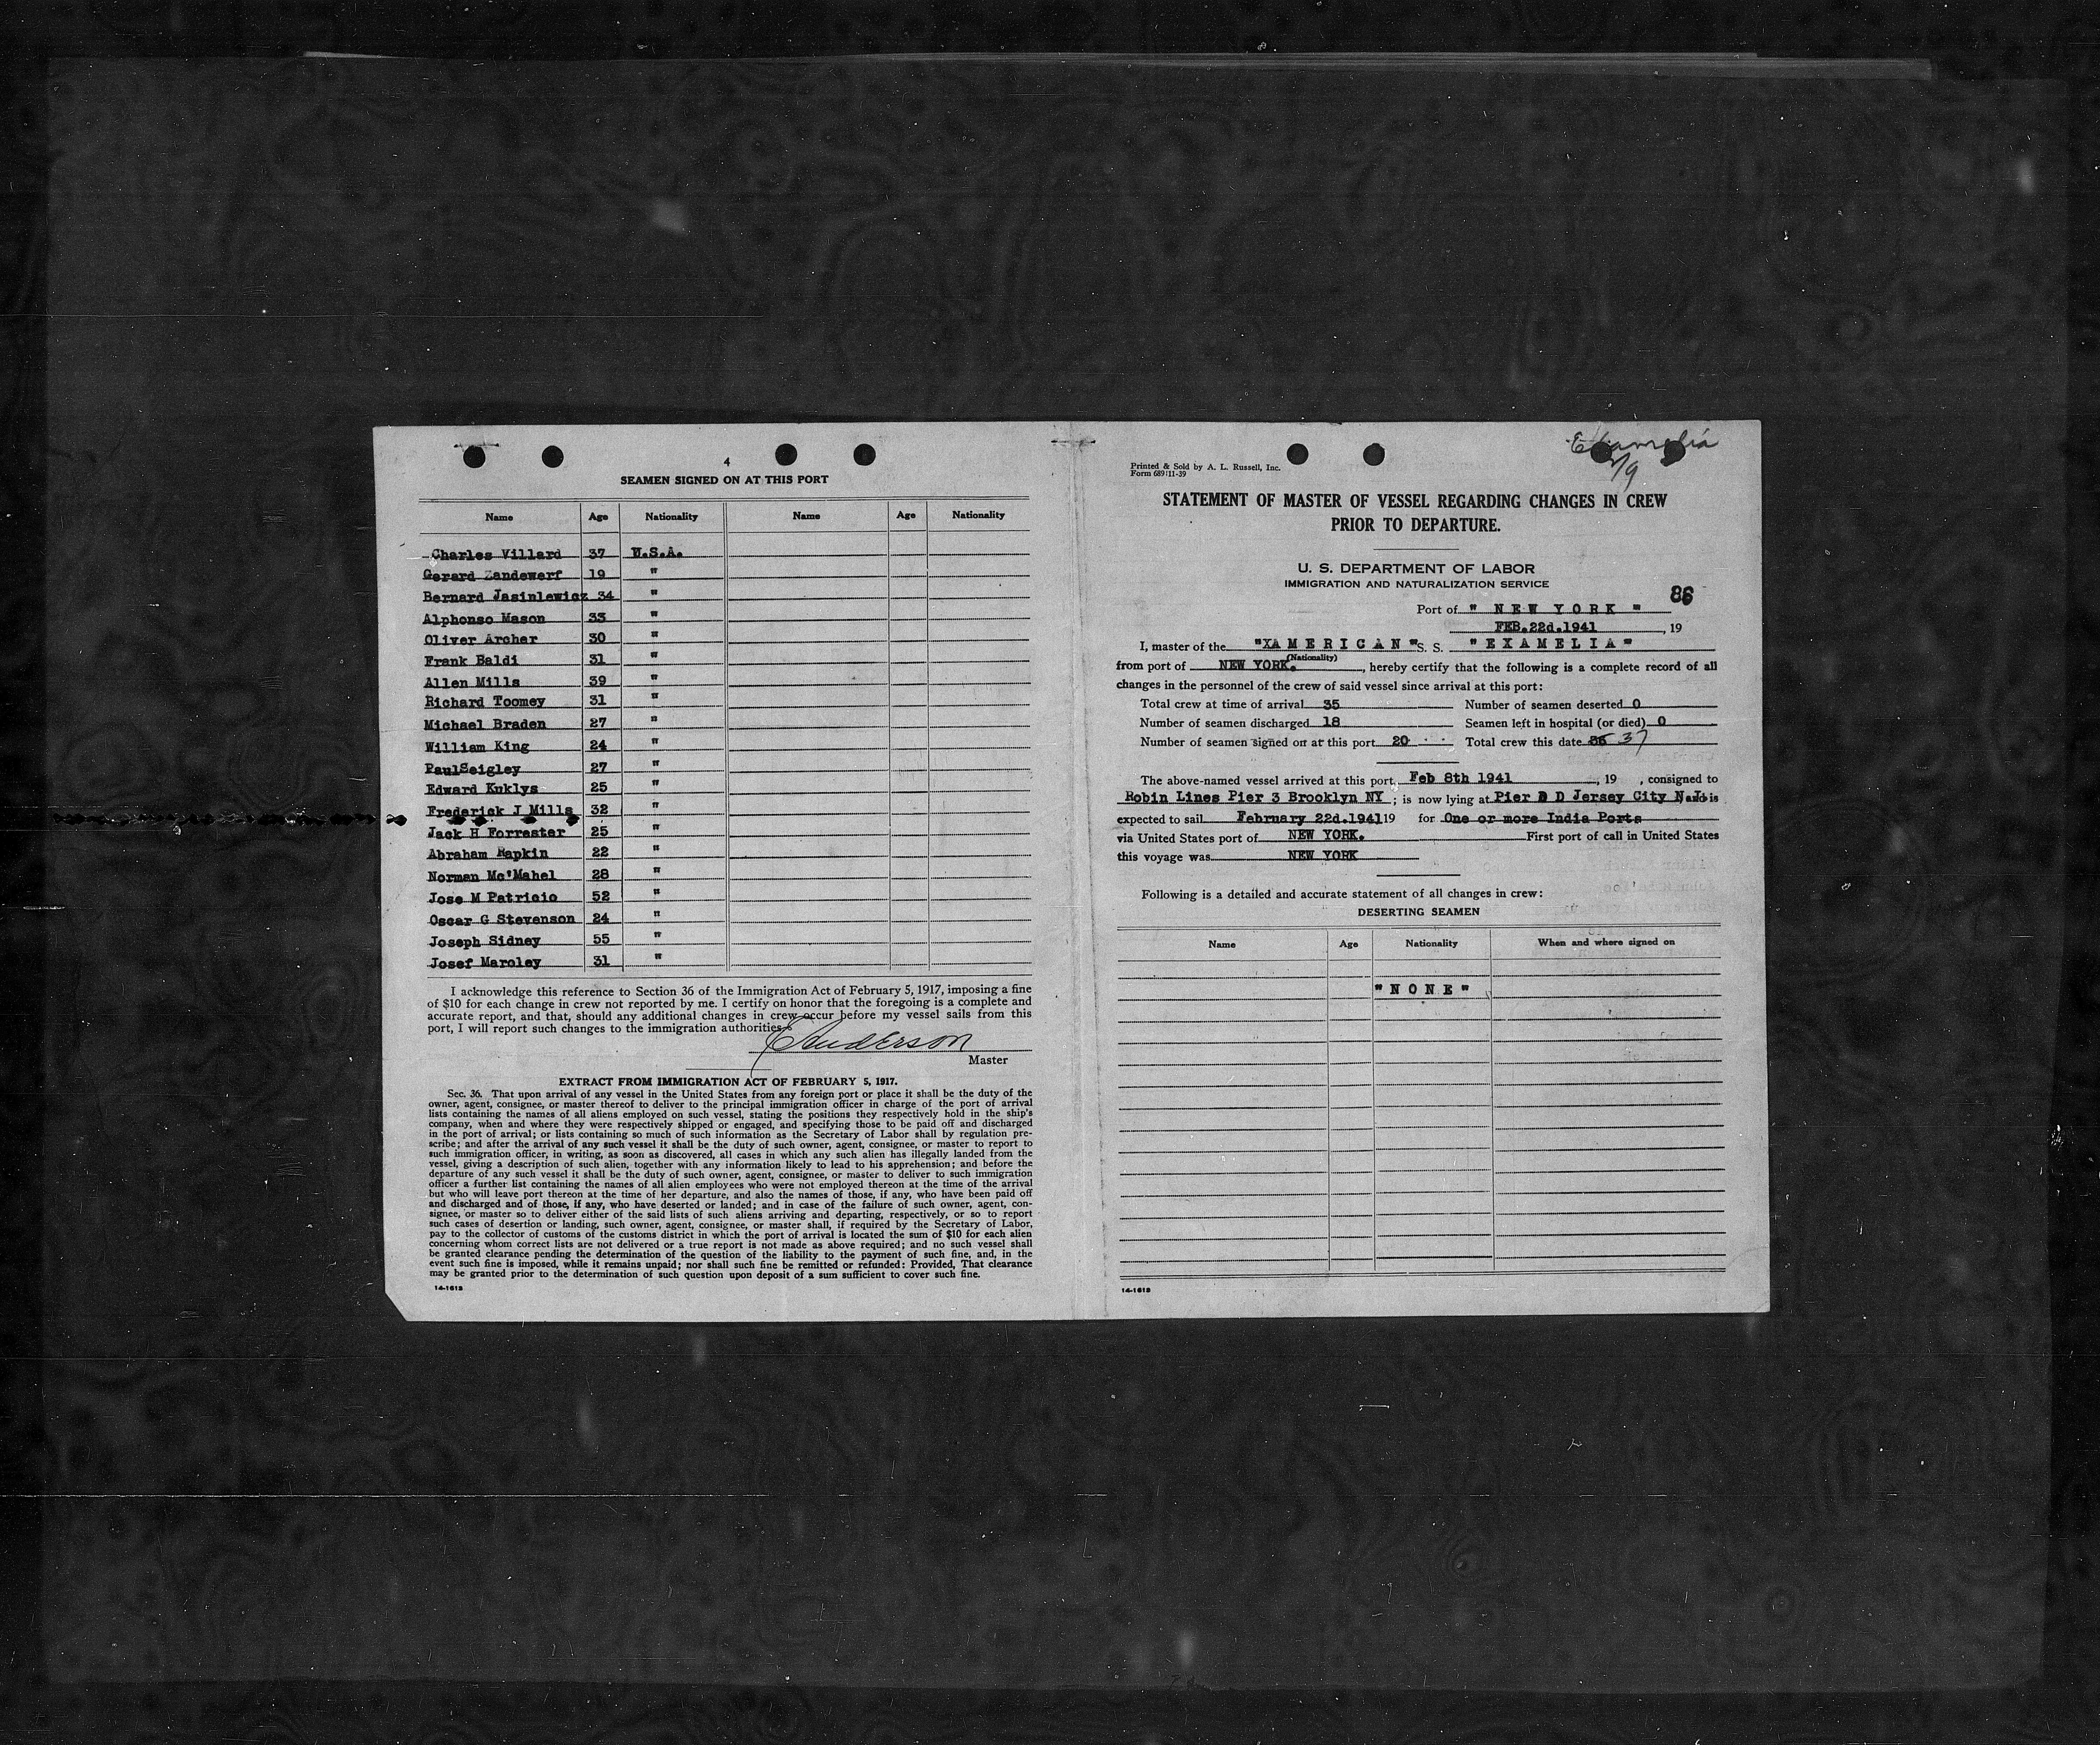 4
SEAMEN SIGNED ON AT THIS PORT
Name Age Nationality Name Age Nationality
Charles Villard 37 U.S.A.
Gerard Zandewerf 19 "
Bernard Jasinlewicz 34 "
Alphonso Mason 33 "
Oliver Archer 30 "
Frank Baldi 31 "
Allen Mills 39 "
Richard Toomey 31 "
Michael Braden 27 "
William King 24 "
PaulSeigley 27 "
Edward Kuklys 25 "
Frederick J Mills 32 "
Jack H Forrester 25 "
Abraham Rapkin 22 "
Norman Mc'Mahel 28 "
Jose M Patricio 52 "
Oscar G Stevenson 24 "
Joseph Sidney 55 "
Josef Maroley 31 "
I acknowledge this reference to Section 36 of the Immigration Act of February 5, 1917, imposing a fine
of $10 for each change in crew not reported by me. I certify on honor that the foregoing is a complete and
accurate report, and that, should any additional changes in crew occur before my vessel sails from this
port, I will report such changes to the immigration authorities.
E Anderson
Master
EXTRACT FROM IMMIGRATION ACT OF FEBRUARY 5, 1917.
Sec. 36. That upon arrival of any vessel in the United States from any foreign port or place it shall be the duty of the
owner, agent, consignee, or master thereof to deliver to the principal immigration officer in charge of the port of arrival
lists containing the names of all aliens employed on such vessel, stating the positions they respectively hold in the ship's
company, when and where they were respectively shipped or engaged, and specifying those to be paid off and discharged
in the port of arrival; or lists containing so much of such information as the Secretary of Labor shall by regulation pre-
scribe; and after the arrival of any such vessel it shall be the duty of such owner, agent, consignee, or master to report to
such immigration officer, in writing, as soon as discovered, all cases in which any such alien has illegally landed from the
vessel, giving a description of such alien, together with any information likely to lead to his apprehension; and before the
departure of any such vessel it shall be the duty of such owner, agent, consignee, or master to deliver to such immigration
officer a further list containing the names of all alien employees who were not employed thereon at the time of the arrival
but who will leave port thereon at the time of her departure, and also the names of those, if any, who have been paid off
and discharged and of those, if any, who have deserted or landed; and in case of the failure of such owner, agent, con-
signee, or master so to deliver either of the said lists of such aliens arriving and departing, respectively, or so to report
such cases of desertion or landing, such owner, agent, consignee, or master shall, if required by the Secretary of Labor,
pay to the collector of customs of the customs district in which the port of arrival is located the sum of $10 for each alien
concerning whom correct lists are not delivered or a true report is not made as above required; and no such vessel shall
be granted clearance pending the determination of the question of the liability to the payment of such fine, and, in the
event such fine is imposed, while it remains unpaid; nor shall such fine be remitted or refunded: Provided, That clearance
may be granted prior to the determination of such question upon deposit of a sum sufficient to cover such fine.
14-1613
Examelia
2/9
Printed & Sold by A. L. Russell, Inc.
Form 689:11-39
STATEMENT OF MASTER OF VESSEL REGARDING CHANGES IN CREW
PRIOR TO DEPARTURE.
U. S. DEPARTMENT OF LABOR
IMMIGRATION AND NATURALIZATION SERVICE
86
Port of " NEW YORK "
FEB.22d.1941 , 19
I, master of the "XAMERICAN" S. S. "EXAMELIA"
(Nationality)
from port of NEW YORK. , hereby certify that the following is a complete record of all
changes in the personnel of the crew of said vessel since arrival at this port:
Total crew at time of arrival 35 Number of seamen deserted 0
Number of seamen discharged 18 Seamen left in hospital (or died) 0
Number of seamen signed on at this port 20 Total crew this date 37
The above-named vessel arrived at this port Feb 8th 1941 , 19 , consigned to
Robin Lines Pier 3 Brooklyn NY ; is now lying at Pier D D Jersey City N.J. and is
expected to sail February 22d.1941 19 for One or more India Ports
via United States port of NEW YORK. First port of call in United States
this voyage was NEW YORK
Following is a detailed and accurate statement of all changes in crew:
DESERTING SEAMEN
Name Age Nationality When and where signed on
"NONE"
14-1613